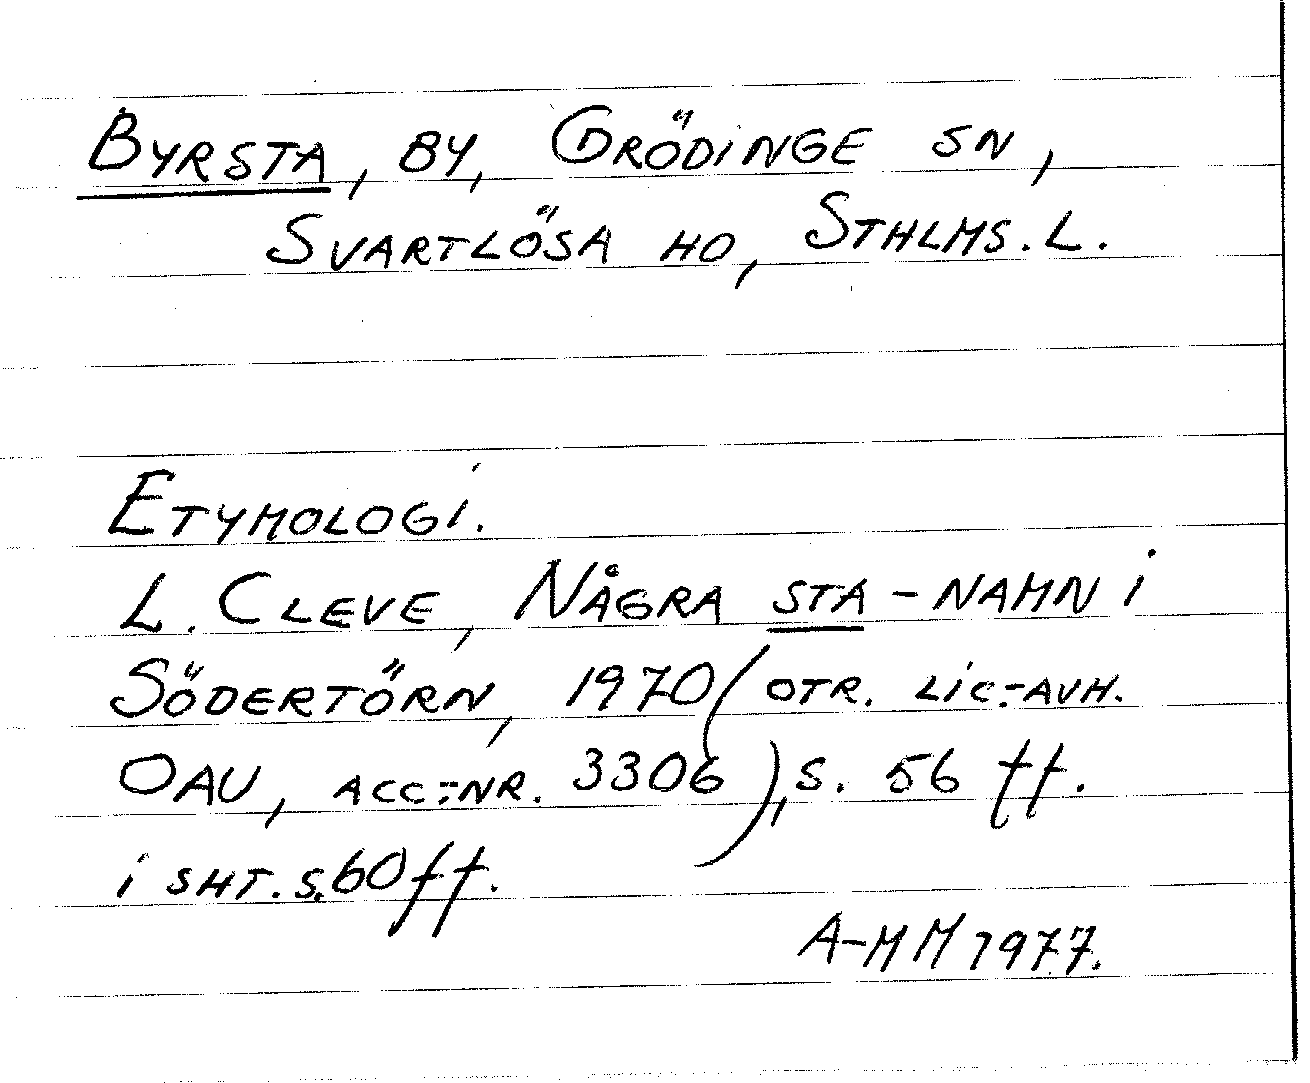 BYRSTA, BY, GRÖDINGE SN,
SVARTLÖSA HD, STHLMS. L.
ETYMOLOGI.
L. CLEVE, NÅGRA STA-NAMN I
SÖDERTÖRN, 1970 (OTR. LIC.-AVH.
OAU, ACC.-NR. 3306), S. 56 ff.
I SHT. S. 60 ff.
A-MM 1977.